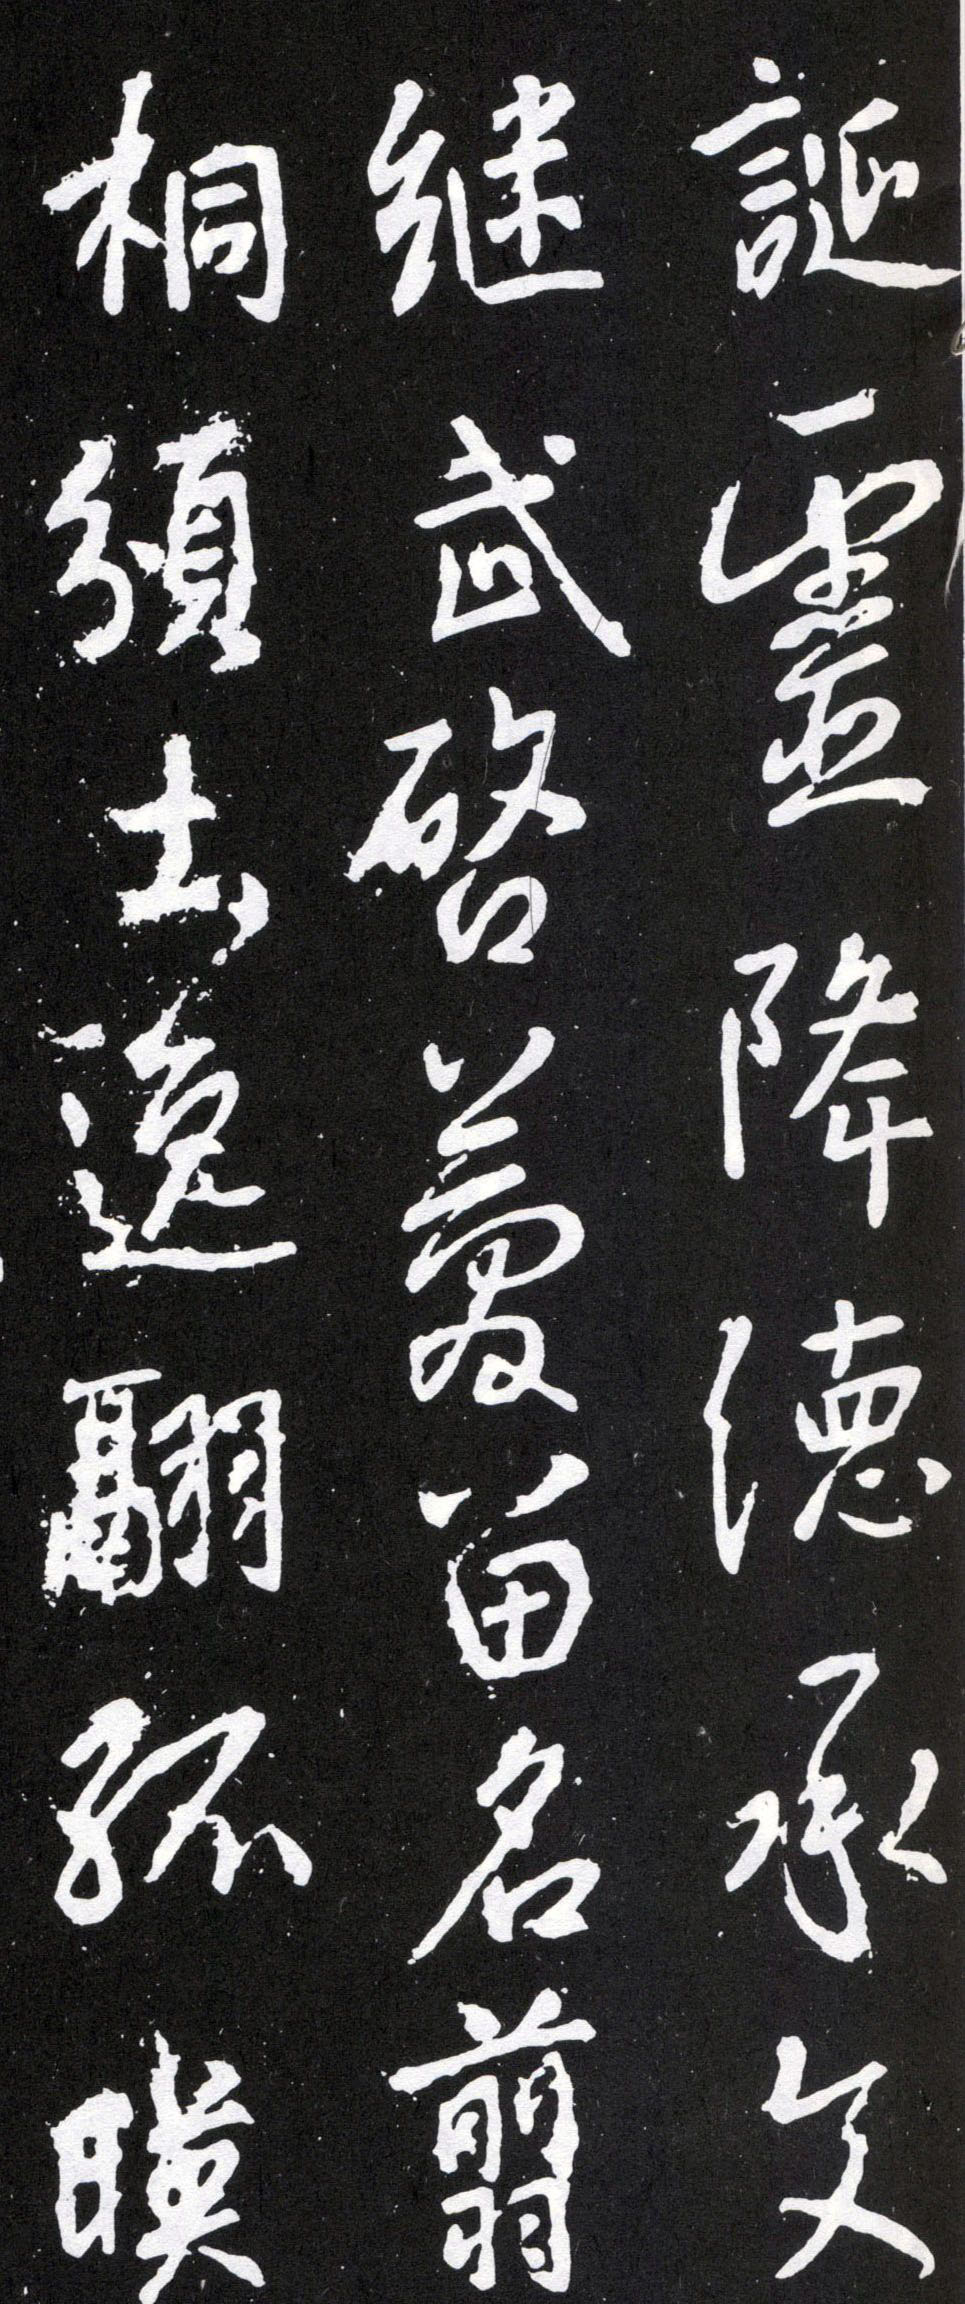 誕靈降德承文
繼武啓夢留名翦
桐頒土逸翮孤暎